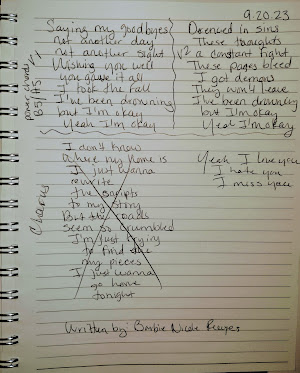 9.20.23
power chords
B5/A5
V1
Saying my goodbyes
not another day
not another sight
Wishing you well
you gave it all
I took the fall
I've been drowning
but I'm okay
Yeah I'm okay
V2
Drenched in sins
These thoughts
a constant fight
These pages bleed
I got demons
They won't leave
I've been drowning
but I'm okay
Yeah I'm okay
Chorus
I don't know
Where my home is
I just wanna
rewrite
the scripts
to my story
But the roads
seem so crumbled
I'm just trying
to find the
my pieces
I just wanna
go home
tonight
Yeah I love you
I hate you
I miss you
Written by: Barbie Nicole